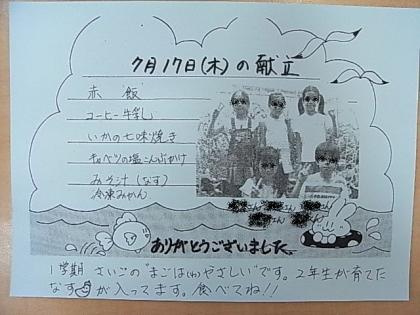 7月17日(木)の献立
赤飯
コーヒー牛乳
いかの七味焼き
キャベツの塩こんぶかけ
みそ汁(なす)
冷凍みかん
ありがとうございました。
1学期 さいごの"まごは(わ)やさしい"です。2年生が育てた
なすが入ってます。食べてね!!